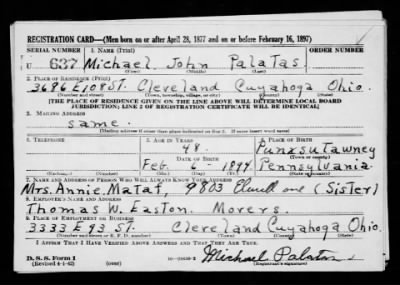 REGISTRATION CARD—(Men born on or after April 28, 1877 and on or before February 16, 1897)
SERIAL NUMBER 1. NAME (Print) ORDER NUMBER
U 637 Michael John Palatas.
(First) (Middle) (Last)
2. PLACE OF RESIDENCE (Print)
3686 E 108 ST. Cleveland Cuyahoga Ohio.
(Number and street) (Town, township, village, or city) (County) (State)
[THE PLACE OF RESIDENCE GIVEN ON THE LINE ABOVE WILL DETERMINE LOCAL BOARD
JURISDICTION; LINE 2 OF REGISTRATION CERTIFICATE WILL BE IDENTICAL]
3. MAILING ADDRESS
same.
[Mailing address if other than place indicated on line 2. If same insert word same]
4. TELEPHONE 5. AGE IN YEARS 6. PLACE OF BIRTH
48. Punxsutawney
DATE OF BIRTH (Town or county)
Feb. 6- 1894 Pennsylvania.
(Exchange) (Number) (Mo.) (Day) (Yr.) (State or country)
7. NAME AND ADDRESS OF PERSON WHO WILL ALWAYS KNOW YOUR ADDRESS
Mrs. Annie. Mataf, 9803 ave (Sister)
8. EMPLOYER'S NAME AND ADDRESS
Thomas W. Easton. Movers.
9. PLACE OF EMPLOYMENT OR BUSINESS
3333 E 93 ST. Cleveland Cuyahoga Ohio.
(Number and street or R. F. D. number) (Town) (County) (State)
I AFFIRM THAT I HAVE VERIFIED ABOVE ANSWERS AND THAT THEY ARE TRUE.
D. S. S. Form 1
(Revised 4-1-42) (over) Michael Palatas
(Registrant's signature)